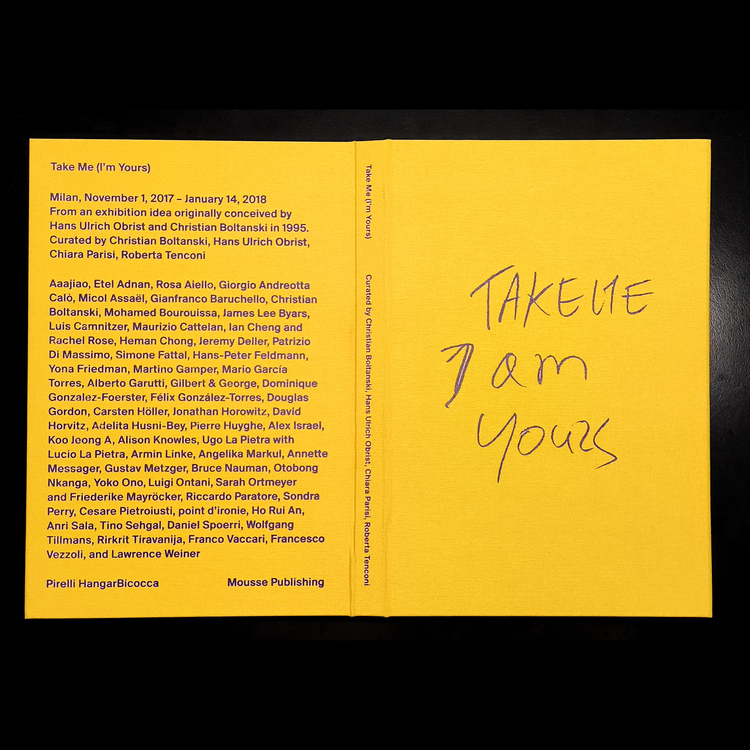 Take Me (I'm Yours)
Milan, November 1, 2017 – January 14, 2018
From an exhibition idea originally conceived by
Hans Ulrich Obrist and Christian Boltanski in 1995.
Curated by Christian Boltanski, Hans Ulrich Obrist,
Chiara Parisi, Roberta Tenconi
Aaajiao, Etel Adnan, Rosa Aiello, Giorgio Andreotta
Calò, Micol Assaël, Gianfranco Baruchello, Christian
Boltanski, Mohamed Bourouissa, James Lee Byars,
Luis Camnitzer, Maurizio Cattelan, Ian Cheng and
Rachel Rose, Heman Chong, Jeremy Deller, Patrizio
Di Massimo, Simone Fattal, Hans-Peter Feldmann,
Yona Friedman, Martino Gamper, Mario García
Torres, Alberto Garutti, Gilbert & George, Dominique
Gonzalez-Foerster, Félix González-Torres, Douglas
Gordon, Carsten Höller, Jonathan Horowitz, David
Horvitz, Adelita Husni-Bey, Pierre Huyghe, Alex Israel,
Koo Jeong A, Alison Knowles, Ugo La Pietra with
Lucio La Pietra, Armin Linke, Angelika Markul, Annette
Messager, Gustav Metzger, Bruce Nauman, Otobong
Nkanga, Yoko Ono, Luigi Ontani, Sarah Ortmeyer
and Friederike Mayröcker, Riccardo Paratore, Sondra
Perry, Cesare Pietroiusti, point d'ironie, Ho Rui An,
Anri Sala, Tino Sehgal, Daniel Spoerri, Wolfgang
Tillmans, Rirkrit Tiravanija, Franco Vaccari, Francesco
Vezzoli, and Lawrence Weiner
Pirelli HangarBicocca Mousse Publishing
Take Me (I'm Yours) Curated by Christian Boltanski, Hans Ulrich Obrist, Chiara Parisi, Roberta Tenconi
TAKE ME
I am
Yours